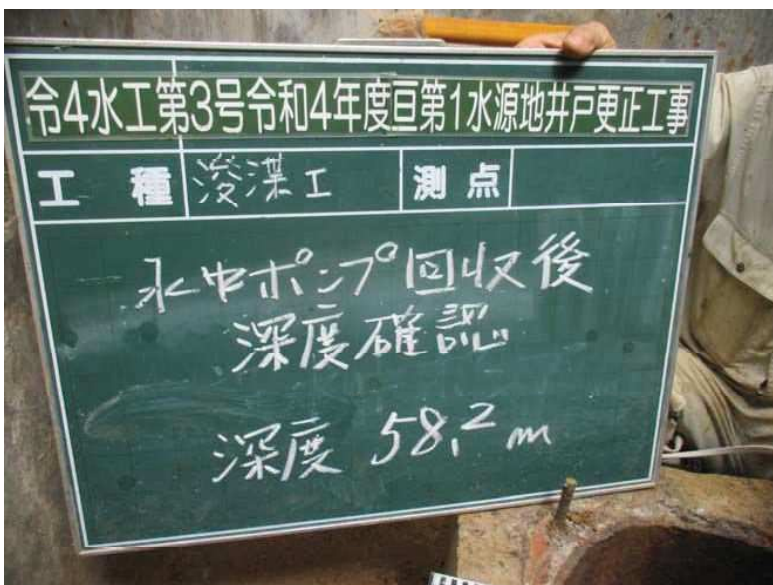 令4水工第3号令和4年度亘第1水源地井戸更正工事
工種 浚渫工 測点
水中ポンプ回収後
深度確認
深度 58.2 m